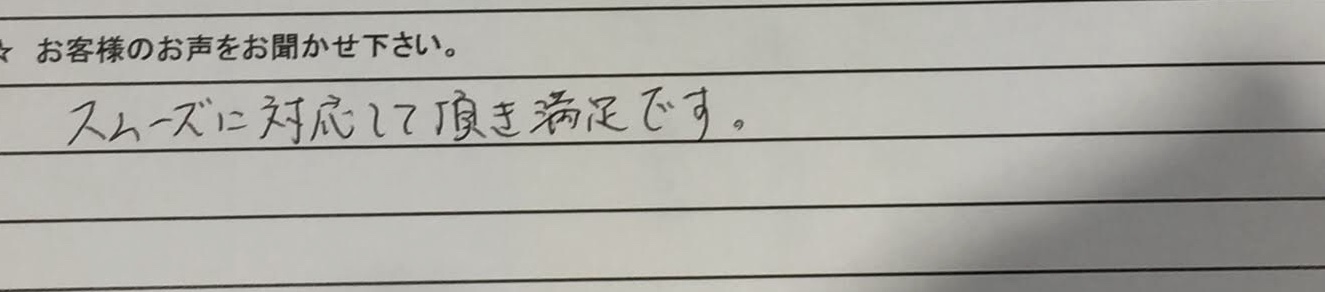 ☆ お客様のお声をお聞かせ下さい。
スムーズに対応して頂き満足です。